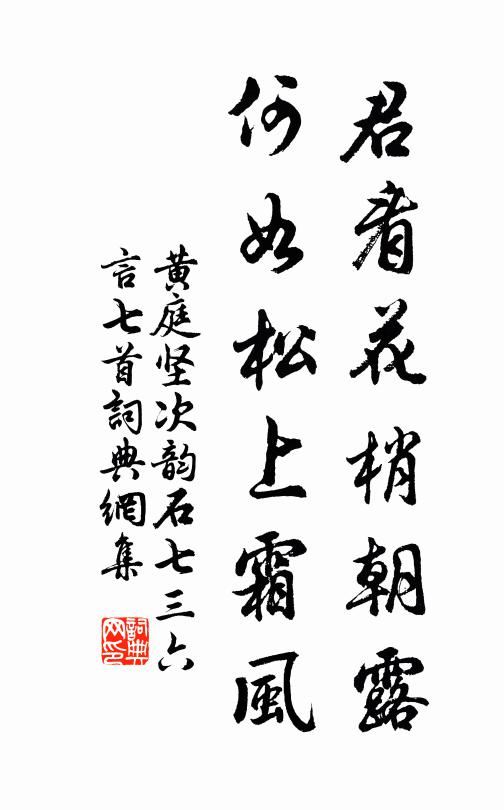 君看花梢朝露
何如松上霜風
黄庭坚次韵石七三六
言七首詞典網集
詞典
网印